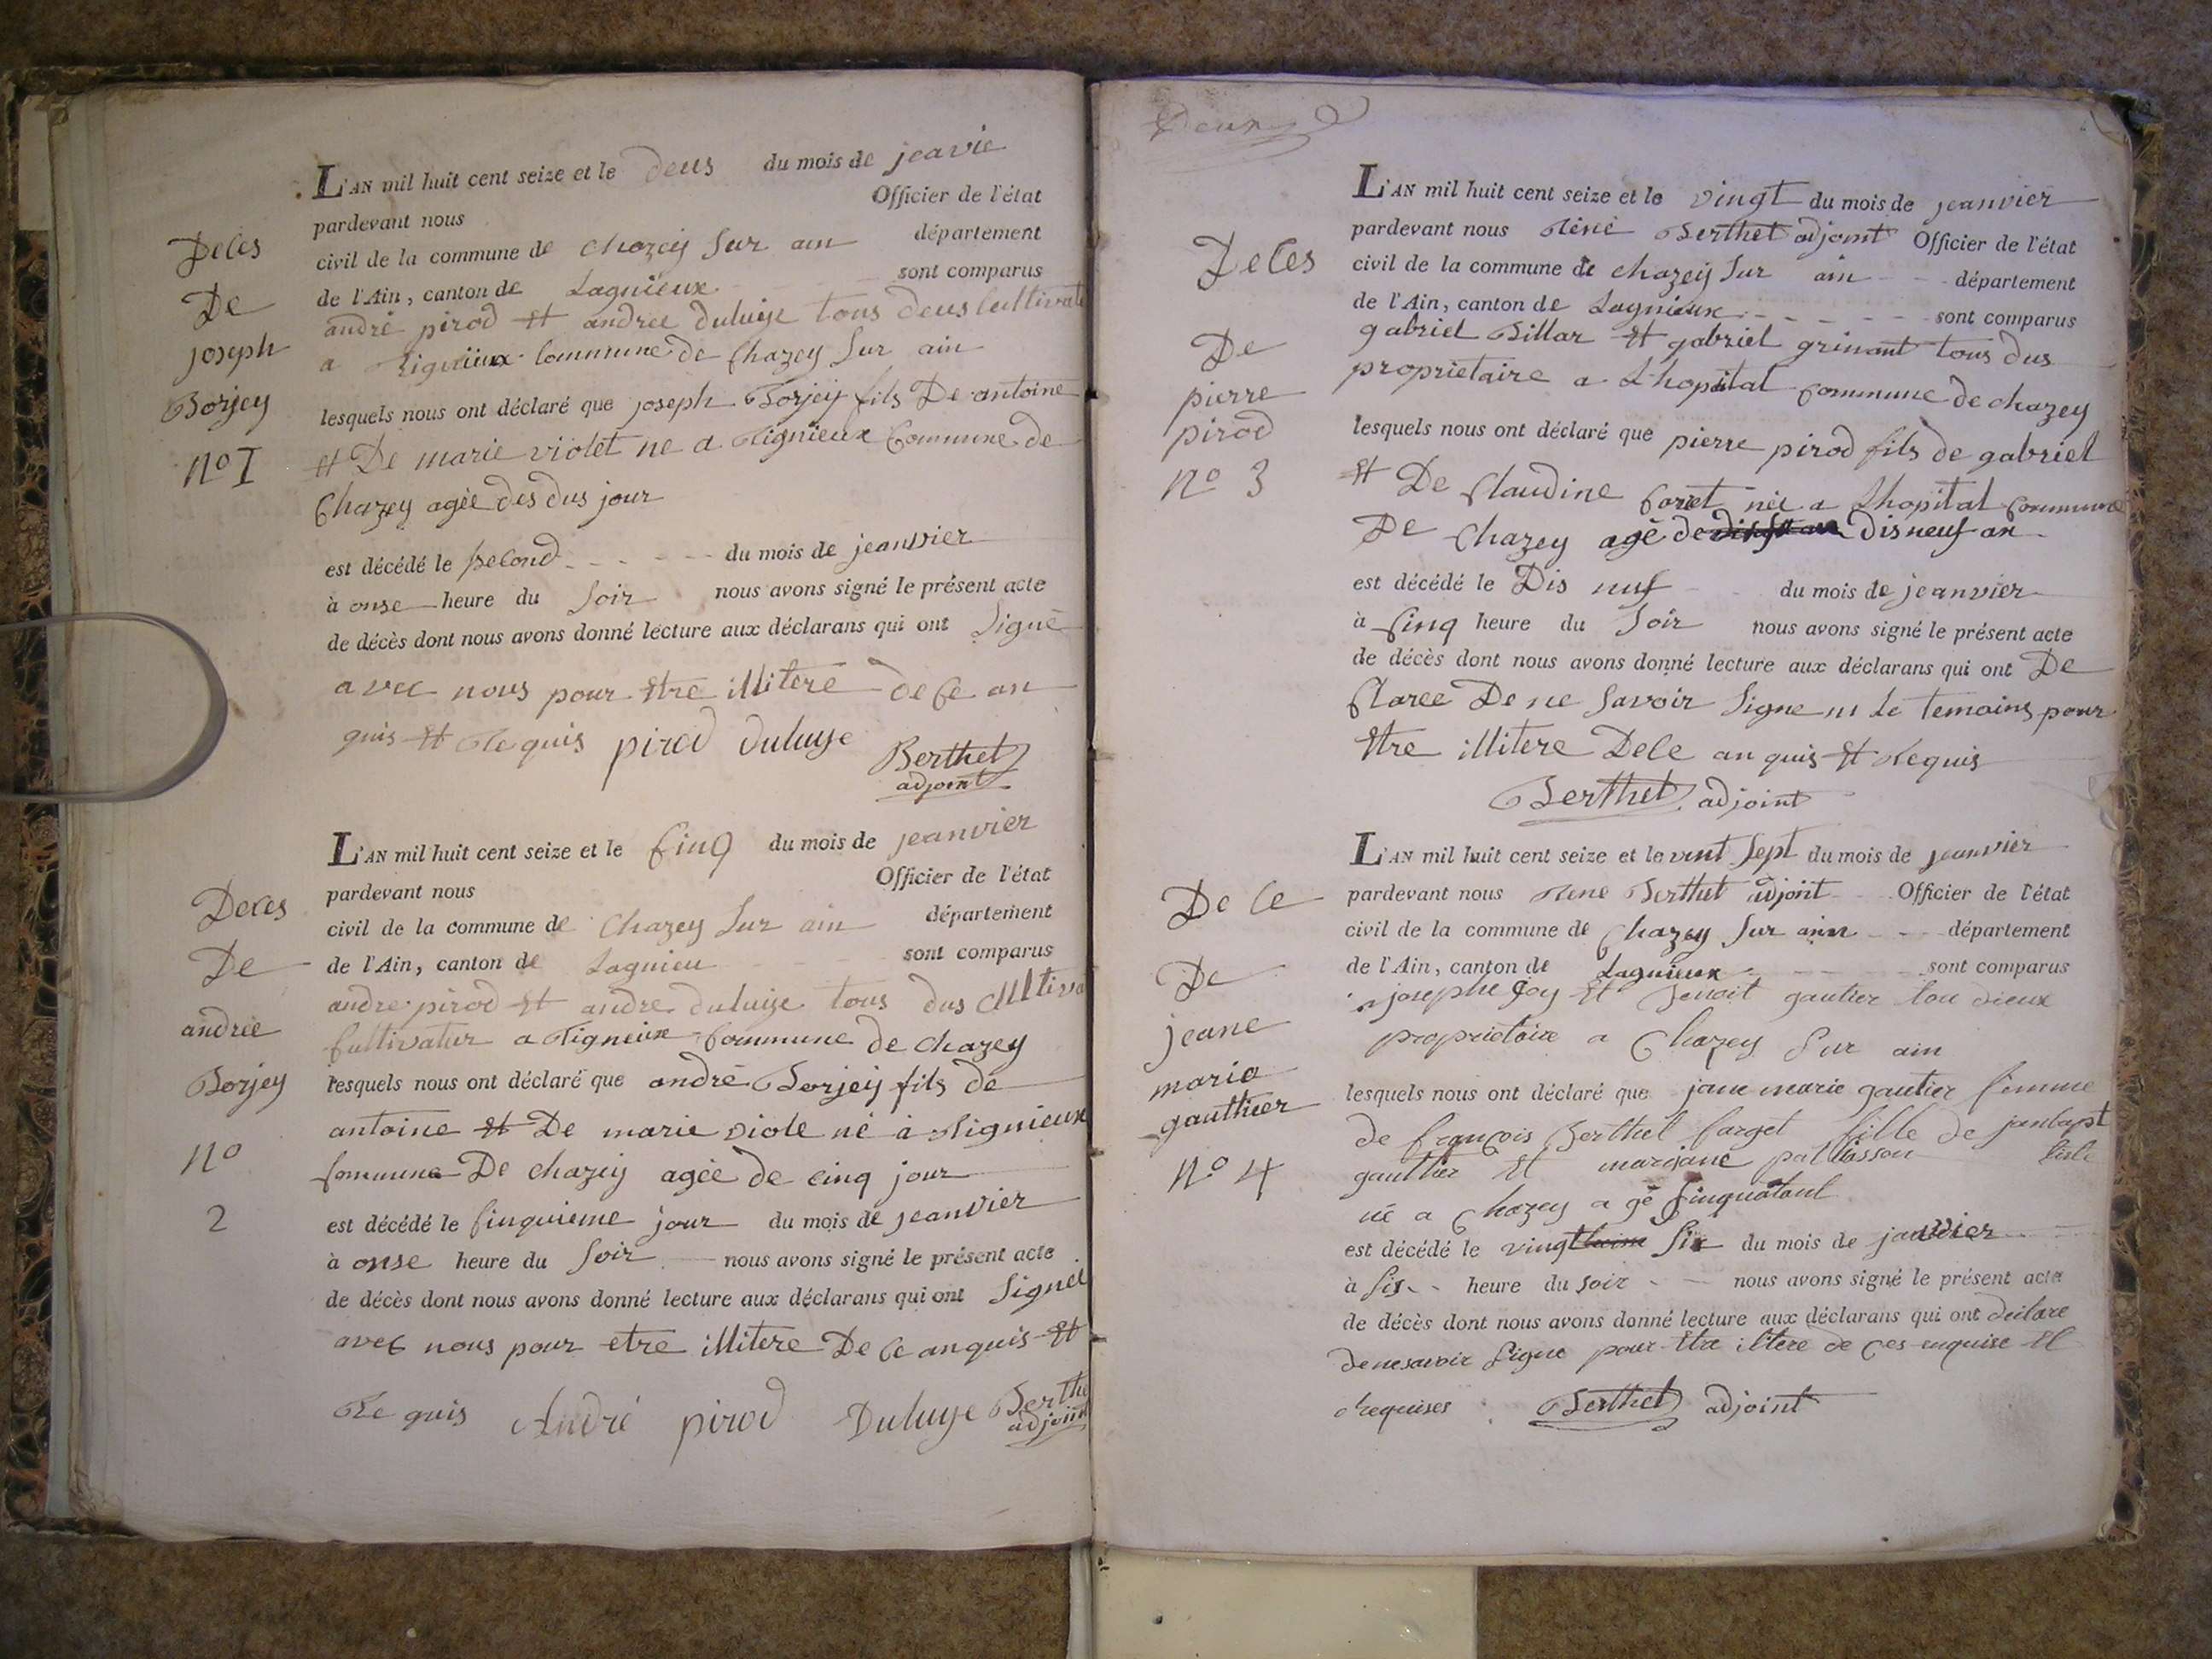 L'AN mil huit cent seize et le deus du mois de jeavie
pardevant nous Officier de l'état
civil de la commune de chazeij Sur ain département
de l'Ain, canton de Lagnieux sont comparus
andré pirod Et andree duluije tous deus Cultivat
a Rignieux Commune de Chazey Sur ain
lesquels nous ont déclaré que joseph Borjeij fils De antoine
Et De marie violet ne a Rignieux Commune de
Chazey agée des dus jour
est décédé le second du mois de jeanvier
à onse heure du Soir nous avons signé le présent acte
de décès dont nous avons donné lecture aux déclarans qui ont Signé
avec nous pour Etre illitere de Ce an
quis Et Requis pirod duluye Berthet
adjoint
Deces
De
joseph
Borjey
No I
L'AN mil huit cent seize et le Cinq du mois de jeanvier
pardevant nous Officier de l'état
civil de la commune de Chazey Sur ain département
de l'Ain, canton de Lagnieu sont comparus
andre pirod Et andre duluije tous dus Cultiva
Cultivatur a Rignieux Commune de chazey
lesquels nous ont déclaré que andré Borjeij fils de
antoine Et De marie viole né à Rignieux
Commune De chazeij agée de cinq jour
est décédé le Cinquieme jour du mois de jeanvier
à onse heure du Soir nous avons signé le présent acte
de décès dont nous avons donné lecture aux déclarans qui ont Signé
avec nous pour etre illitere De Ce anquis Et
Re quis André pirod Duluye Berthe
adjoint
Deces
De
andrée
Borjey
No
2
Deux
L'AN mil huit cent seize et le vingt du mois de jeanvier
pardevant nous Réné Berthet adjoint Officier de l'état
civil de la commune de chazeij Sur ain département
de l'Ain, canton de Lagnieux sont comparus
gabriel Billar Et gabriel grinant tous dus
proprietaire a L'hopital Commune de chazey
lesquels nous ont déclaré que pierre pirod fils de gabriel
Et De Claudine Coret née a Lhopital Commune
De Chazey agé de disneuf an
est décédé le Dis nuf du mois de jeanvier
à Cinq heure du Soir nous avons signé le présent acte
de décès dont nous avons donné lecture aux déclarans qui ont De
Claree De ne Savoir Signe ni Le temoins pour
Etre illitere Dece an quis Et Requis
Berthet adjoint
Deces
De
pierre
pirod
No 3
L'AN mil huit cent seize et le vint Sept du mois de jeanvier
pardevant nous Rene Berthet adjoit Officier de l'état
civil de la commune de Chazey Sur ain département
de l'Ain, canton de Lagnieux sont comparus
josephe joy Et Benoit gautier tou dieux
proprietaire a Chazey Sur ain
lesquels nous ont déclaré que jane marie gautier femme
de françois Berthet farget fille de janbapt
gautier Et marijane pallasson
né a Chazey a gé
est décédé le vingt Six du mois de janvier
à Six heure du soir nous avons signé le présent acte
de décès dont nous avons donné lecture aux déclarans qui ont déclare
denesavoir Signe pour Etre iltere de Ces enquise Et
Requises Berthet adjoint
De Ce
De
jeane
maria
gauthier
No 4